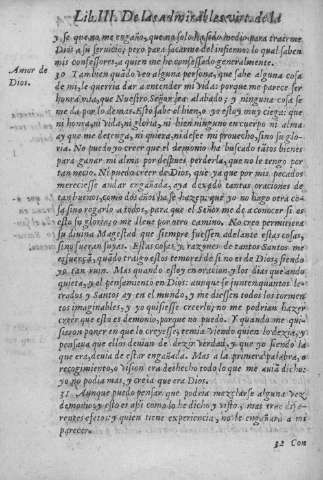 Lib. III. De las admirables virtudes de la
y se que no me engaño, que no solo ha sido medio para traerme
Dios a su servicio; pero para sacarme del infierno: lo qual saben
mis confessores, a quien me he confessado generalmente.
Amor de
Dios.
30 Tambien quãdo veo alguna persona, que sabe alguna cosa
de mi, le querria dar a entender mi vida: porque me parece ser
honra mia, que Nuestro Señor sea alabado; y ninguna cosa se
me da por lo demas. Esto sabe el bien, o yo estoy muy ciega: que
ni honra, ni vida, ni gloria, ni bien ninguno en cuerpo ni alma
ay que me detenga, ni quiera, ni desee mi provecho, sino su glo-
ria. No puedo yo creer que el demonio ha buscado tãtos bienes
para ganar mi alma por despues perderla, que no le tengo por
tan necio. Ni puedo creer de Dios, que ya que por mis pecados
mereciesse andar engañada, aya dexado tantas oraciones de
tan buenos, como dos años ha se hazen; que yo no hago otra co-
sa sino rogarlo a todos, para que el Señor me dè a conocer si es
esto su gloria, o me lleve por otro camino. No creo permitirà
su divina Magestad que siempre fuessen adelante estas cosas,
sino fueran suyas. Estas cosas, y razones de tantos Santos me
esfuerçã, quãdo traigo estos temores de si no es de Dios, siendo
yo tan ruin. Mas quando estoy en oracion, y los dias que ando
quieta, y el pensamiento en Dios: aunque se junten quantos le-
trados y Santos ay en el mundo, y me diessen todos los tormen-
tos imaginables, y yo quisiesse creerlo, no me podrian hazer
creer que esto es demonio, porque no puedo. Y quando me qui-
sieron poner en que lo creyesse, temia viendo quien lo dezia; y
pensava que ellos devian de dezir verdad, y que yo siendo la
que era, devia de estar engañada. Mas a la primera palabra, o
recogimiento, o vision era deshecho todo lo que me aviã dicho:
yo no podia mas, y creia que era Dios.
31 Aunque puedo pensar que podria mezclarse alguna vez
demonio, y esto es assi como lo he dicho y visto; mas trae dife-
rentes efetos: y quien tiene experiencia, no le engañarà a mi
parecer.
32 Con